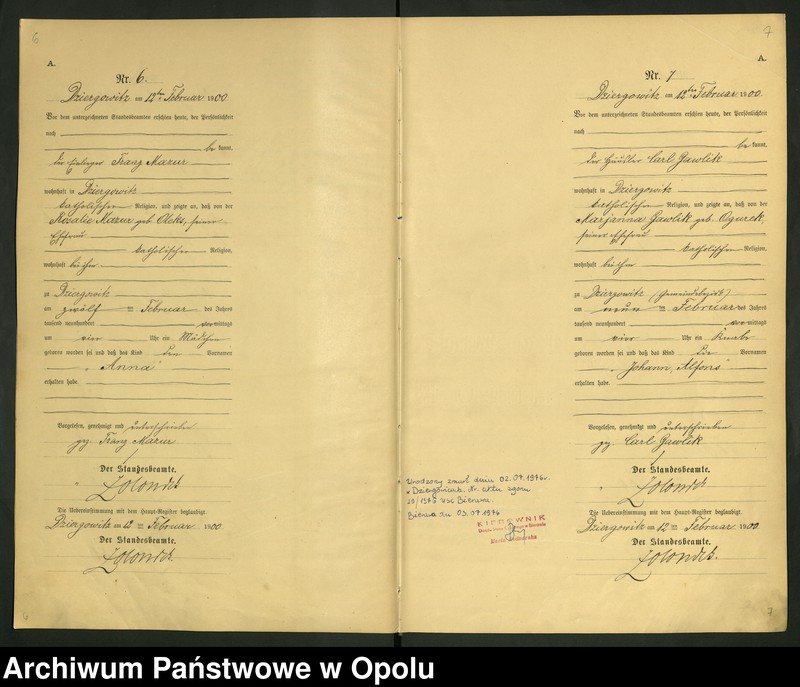 6
A.
Nr. 6.
Dziergowitz am 12ten Februar 1900
Vor dem unterzeichneten Standesbeamten erschien heute, der Persönlichkeit
nach
be kannt,
der Franz Mazur
wohnhaft in Dziergowitz
katholischer Religion, und zeigte an, daß von der
Rosalie Mazur geb. Oleks, seiner
Ehefrau
katholischer Religion,
wohnhaft bei ihm
zu Dziergowitz
am zwölf ten Februar des Jahres
tausend neunhundert vormittags
um vier Uhr ein Mädchen
geboren worden sei und daß das Kind den Vornamen
"Anna"
erhalten habe.
Vorgelesen, genehmigt und unterschrieben
gez. Franz Mazur
Der Standesbeamte.
Die Uebereinstimmung mit dem Haupt-Register beglaubigt.
Dziergowitz am 12 ten Februar 1900
Der Standesbeamte.
6
7
A.
Nr. 7
Dziergowitz am 12ten Februar 1900.
Vor dem unterzeichneten Standesbeamten erschien heute, der Persönlichkeit
nach
be kannt,
der Häusler Carl Gawlik
wohnhaft in Dziergowitz
katholischer Religion, und zeigte an, daß von der
Marjanna Gawlik geb. Ogurek,
seiner Ehefrau
katholischer Religion,
wohnhaft bei ihm
zu Dziergowitz (Gemeindebezirk)
am neun ten Februar des Jahres
tausend neunhundert vormittags
um vier Uhr ein Knabe
geboren worden sei und daß das Kind die Vornamen
"Johann, Alfons"
erhalten habe.
Vorgelesen, genehmigt und unterschrieben
gez. Carl Gawlik
Der Standesbeamte.
Die Uebereinstimmung mit dem Haupt-Register beglaubigt.
Dziergowitz am 12 ten Februar 1900
Der Standesbeamte.
Urodzony zmarł dnia 02.07.1976r.
w Dziergowicach, Nr. aktu zgonu
USC Bierawa.
Bierawa dn 03.07.1976
KIEROWNIK
7
Archiwum Państwowe w Opolu